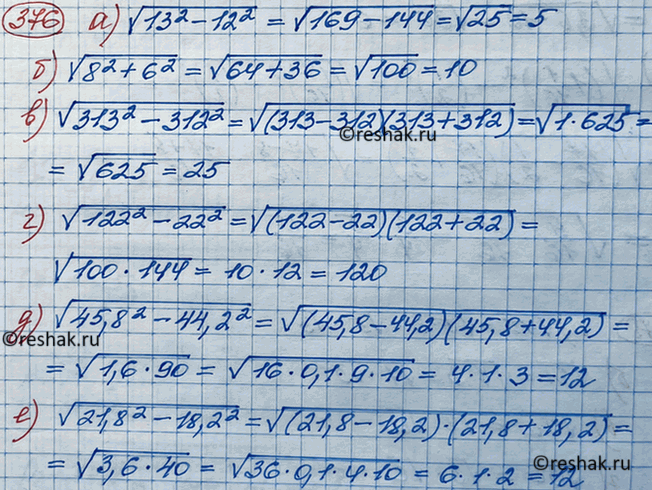 376 а) √13² − 12² = √169 − 144 = √25 = 5
б) √8² + 6² = √64 + 36 = √100 = 10
в) √313² − 312² = √(313 − 312)(313 + 312) = √1·625 =
©reshak.ru
= √625 = 25
г) √122² − 22² = √(122 − 22)(122 + 22) =
√100 · 144 = 10 · 12 = 120
д) √45,8² − 44,2² = √(45,8 − 44,2)(45,8 + 44,2) =
©reshak.ru
= √1,6 · 90 = √16 · 0,1 · 9 · 10 = 4 · 1 · 3 = 12
©reshak.ru
е) √21,8² − 18,2² = √(21,8 − 18,2) · (21,8 + 18,2) =
= √3,6 · 40 = √36 · 0,1 · 4 · 10 = 6 · 1 · 2 = 12
©reshak.ru